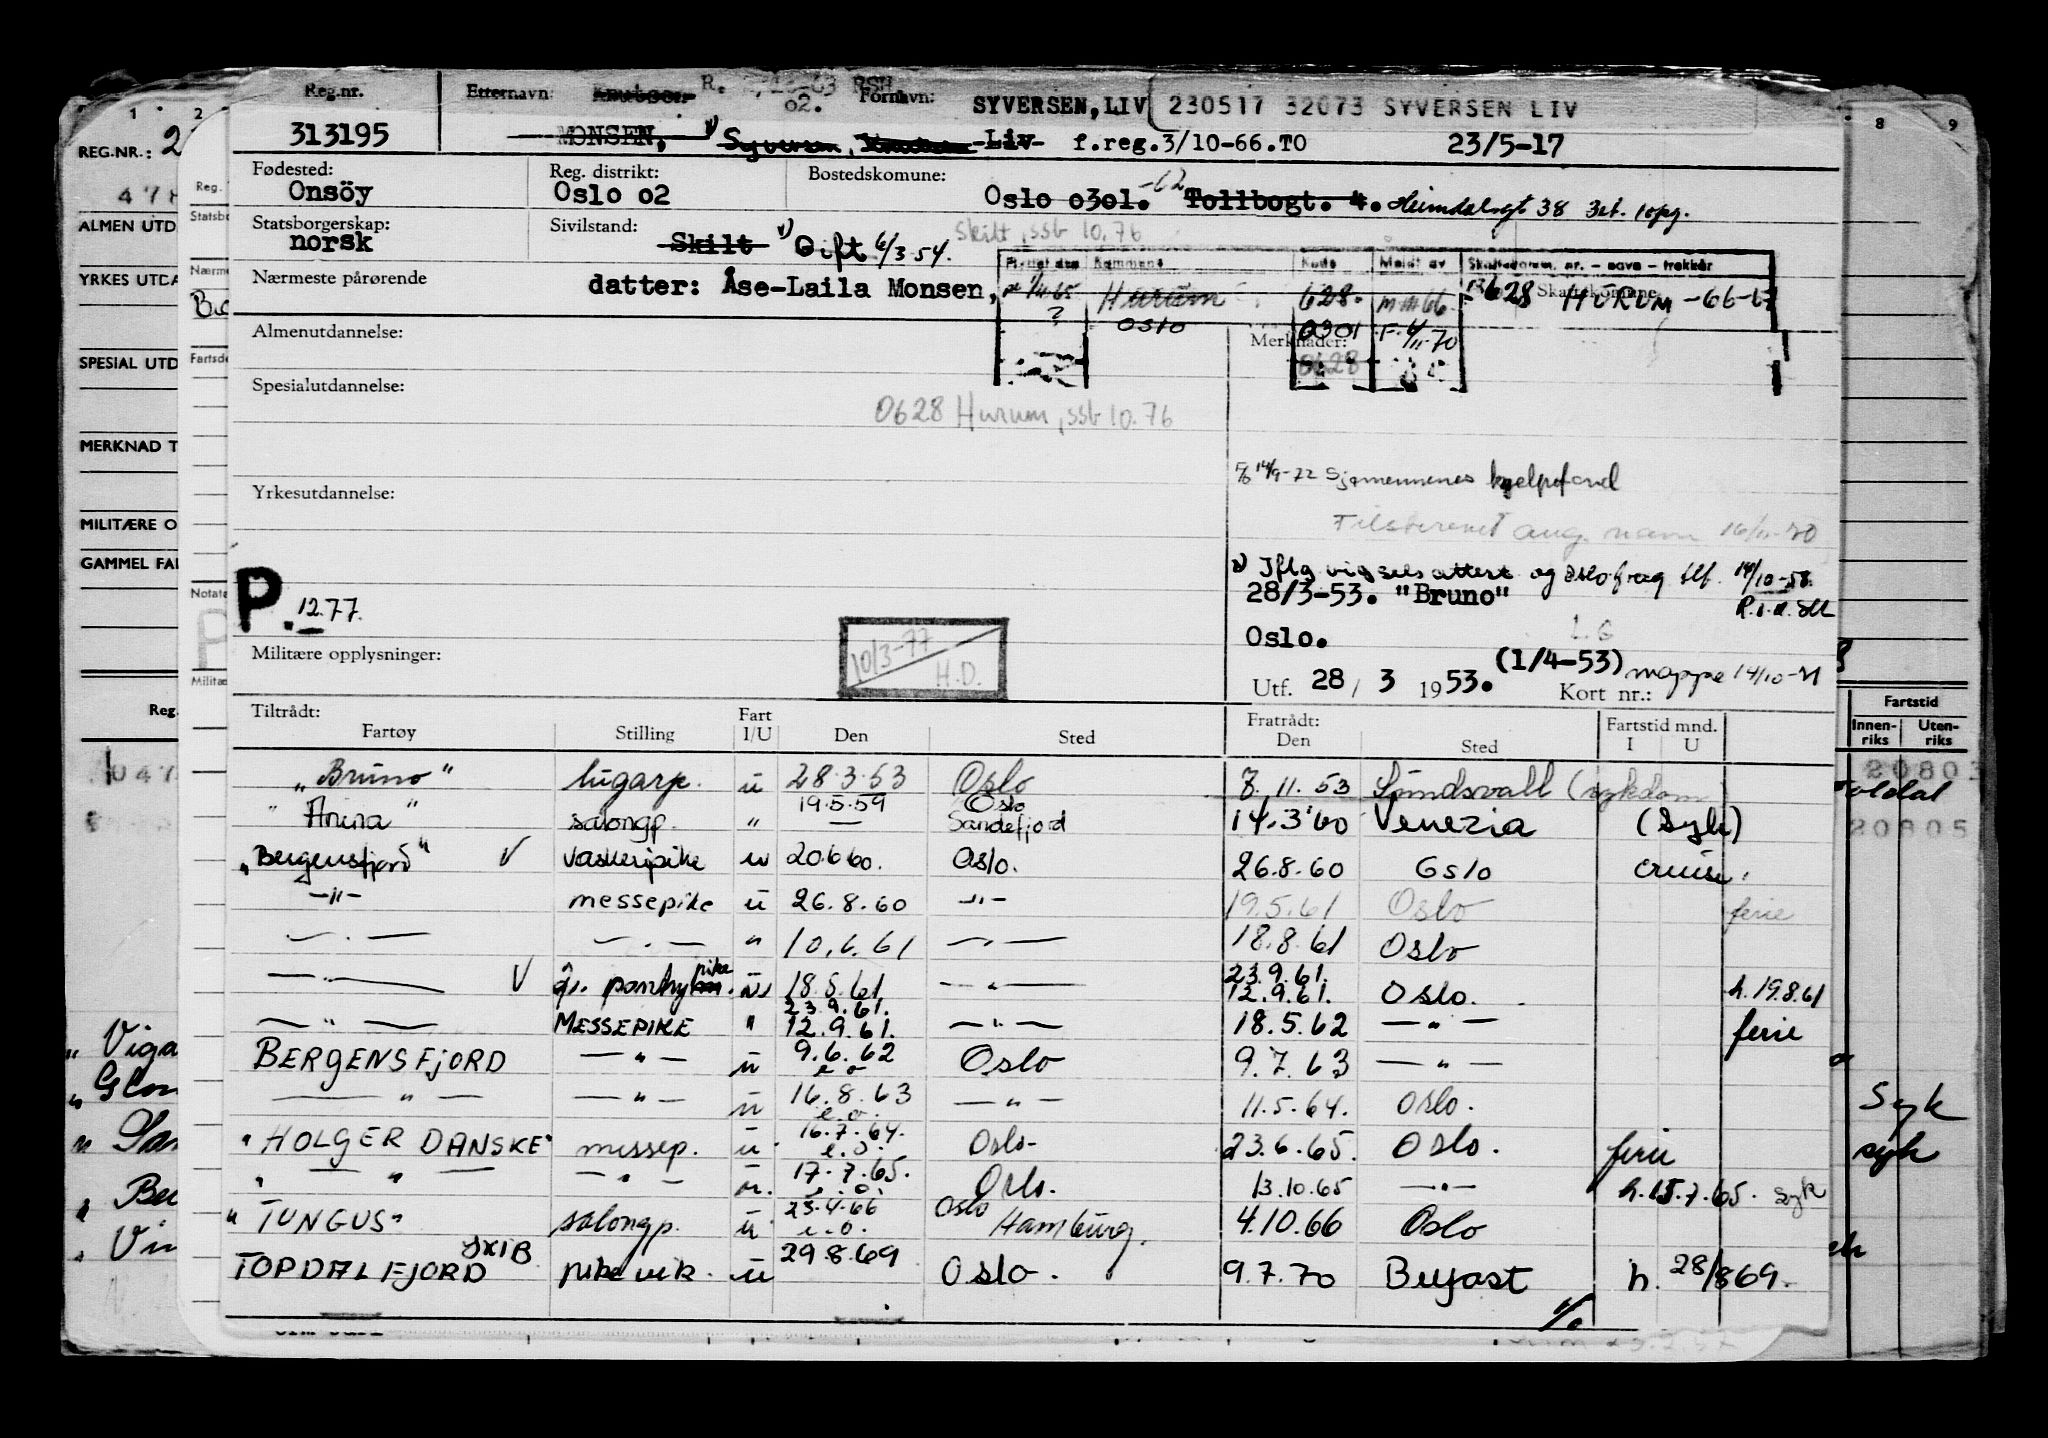 Reg.nr. Etternavn: Knutsen R. RSH Fornavn: SYVERSEN, LIV 230517 32073 SYVERSEN LIV
o2.
313195 MONSEN, Syversen, Knutsen Liv f.reg.3/10-66.TO 23/5-17
Fødested: Reg. distrikt: Bostedskomune:
Onsöy Oslo o2 Oslo o3o1. -62 Tollbogt. 4. Heimdalsgt 38 3et. oppg.
Statsborgerskap: Sivilstand:
norsk Skilt Gift 6/3 54. Skilt, ssb 10.76
Nærmeste pårørende datter: Åse-Laila Monsen,
Kommune Kode Meldt av
1/4-65 Hurum 628. 628 HURUM -66-67
? OSLO 0301 F. 4/11-70
0628
Almenutdannelse: Merknader:
Spesialutdannelse:
0628 Hurum, ssb 10.76
Yrkesutdannelse:
14/9-72 Sjømennenes hjelpefond
16/11-70
Iflg vigselsattest og Oslo freg tlf. 14/10-58.
28/3-53. "Bruno"
P. 12.77.
Oslo.
Militære opplysninger:
10/3-77 H.D.
(1/4-53) mappe 14/10-71
Utf. 28 / 3 1953. Kort nr.:
Tiltrådt: Fratrådt: Fartstid mnd.
Fartøy Stilling Fart I/U Den Sted Den Sted I U
"Bruno" lugarp. u 28.3.53 Oslo 7.11.53 Sundsvall (sykdom
19.5.59 Oslo
"Anina" salongp. " — Sandefjord 14.3.60 Venezia (Syk)
"Bergensfjord" V vaskeripike u 20.6.60. Oslo. 26.8.60 Oslo cruise.
—"— messepike u 26.8.60 —"— 19.5.61 Oslo ferie
—"— —"— " 10.6.61 —"— 18.8.61 Oslo
—"— V pantrypike u 18.5.61 —"— 23.9.61. 12.9.61. Oslo. h. 19.8.61
—"— MESSEPIKE " 23.9.61. 12.9.61. —"— 18.5.62 —"— ferie
BERGENSFJORD —"— u 9.6.62 e.o Oslo 9.7.63 —"—
—"— —"— u 16.8.63 e.o. —"— 11.5.64. Oslo.
"HOLGER DANSKE" messep. u 16.7.64. e.o. Oslo- 23.6.65. Oslo. ferie
" — " — —"— u. 17.7.65. e.o. Oslo. 13.10.65 —"— h. 15.7.65. syk
"TUNGUS" salongp. u 23.4.66 e.o. Oslo Hamburg. 4.10.66 Oslo
TOPDALSFJORD SXIB pike vik. u 29.8.69 Oslo. 9.7.70 Belfast h. 28/8 69.
1 2
REG.NR.: 2
ALMEN UTD
YRKES UTDA
SPESIAL UTD
MERKNAD T
MILITÆRE O
GAMMEL FA
Reg.
Statsbo
Nærme
Fartsde
Notate
Militæ
8 9
Fartstid
Innen-riks Uten-riks
20803
20805
Syk
syk